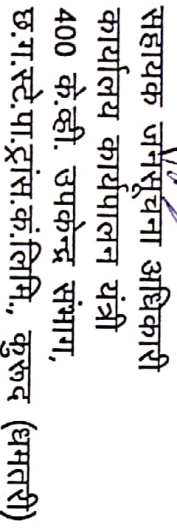 सहायक जनसूचना अधिकारी
कार्यालय कार्यपालन यंत्री
400 के.व्ही. उपकेन्द्र संभाग,
छ.ग.स्टे.पा.ट्रांस.कं.लिमि., कुरूद (धमतरी)